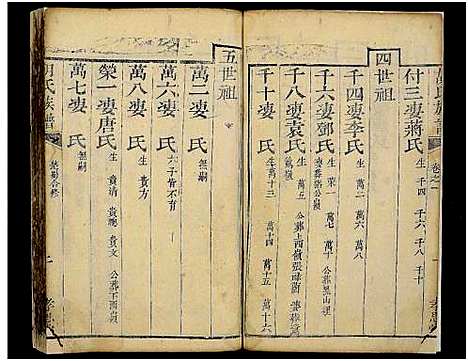 付三妻蔣氏 生 千四 千六 千八 千十
四世祖
千四妻李氏 生 萬六 萬八
千六妻鄧氏 生 榮一 萬七
千八妻袁氏 生 萬五 公葬上西嶺
千十妻 氏 生 萬十三 萬十四 萬十五 萬十六
五世祖
萬二妻 氏 無嗣
萬六妻 氏 六子皆不育
萬八妻 氏 生 貴方
榮一妻唐氏 生 貴清 貴聰 貴文 公葬下西嶺
萬七妻 氏 無嗣
氏族譜